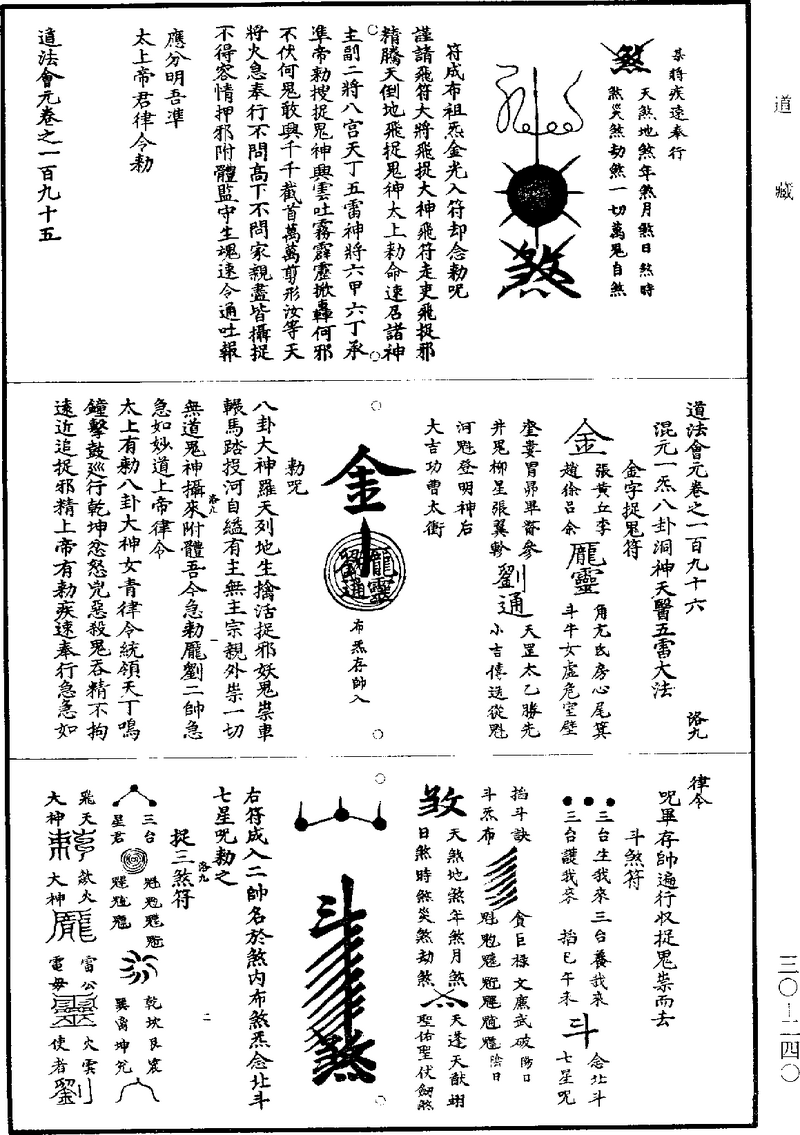 道藏
三〇—二四〇
某將疾速奉行
天煞地煞年煞月煞日煞時
煞災煞劫煞一切萬鬼自煞
煞
符成布祖炁金光入符却念勑呪
謹請飛符大將飛捉大神飛符走吏飛捉邪
精騰天倒地飛捉鬼神太上勑命速召諸神
主副二將八宫天丁五雷神將六甲六丁承
準帝勑搜捉鬼神興雲吐霧霹靂掀轟何邪
不伏何鬼敢興千千截首萬萬剪形汝等天
將火急奉行不問高下不問家親盡皆攝捉
不得容情押邪附體監守生魂速令通吐報
應分明吾準
太上帝君律令勑
道法會元卷之一百九十五
道法會元卷之一百九十六
洛九
混元一炁八卦洞神天醫五雷大法
金字捉鬼符
金
張黃丘李
趙徐吕余
龐靈
角亢氐房心尾箕
斗牛女虛危室壁
奎婁胃昴畢觜參
井鬼柳星張翼軫
劉通
天罡太乙勝先
小吉傳送從魁
河魁登明神后
大吉功曹太衝
金
龐靈
劉通
布炁存帥入
勑呪
八卦大神羅天列地生擒活捉邪妖鬼祟車
輾馬踏投河自縊有主無主宗親外祟一切
無道鬼神攝來附體吾今急勑龐劉二帥急
急如妙道上帝律令
太上有勑八卦大神女青律令統領天丁鳴
鐘擊鼓巡行乾坤忿怒兇惡殺鬼吞精不拘
遠近追捉邪精上帝有勑疾速奉行急急如
律令
呪畢存帥遍行收捉鬼祟而去
斗煞符
三台生我來三台養我來
三台護我來
掐巳午未
斗
念北斗
七星呪
掐斗訣
斗炁布
貪巨祿文廉武破
陽日
陰日
天煞地煞年煞月煞
日煞時煞災煞劫煞
天蓬天猷翊
聖佑聖伏劒煞
斗
煞
右符成入二帥名於煞內布煞炁念北斗
七星呪勑之
洛九
二
捉三煞符
三台
星君
乾坎艮震
巽离坤兌
飛天
大神
歘火
大神
龐
雷公
電母
靈
火雲
使者
劉